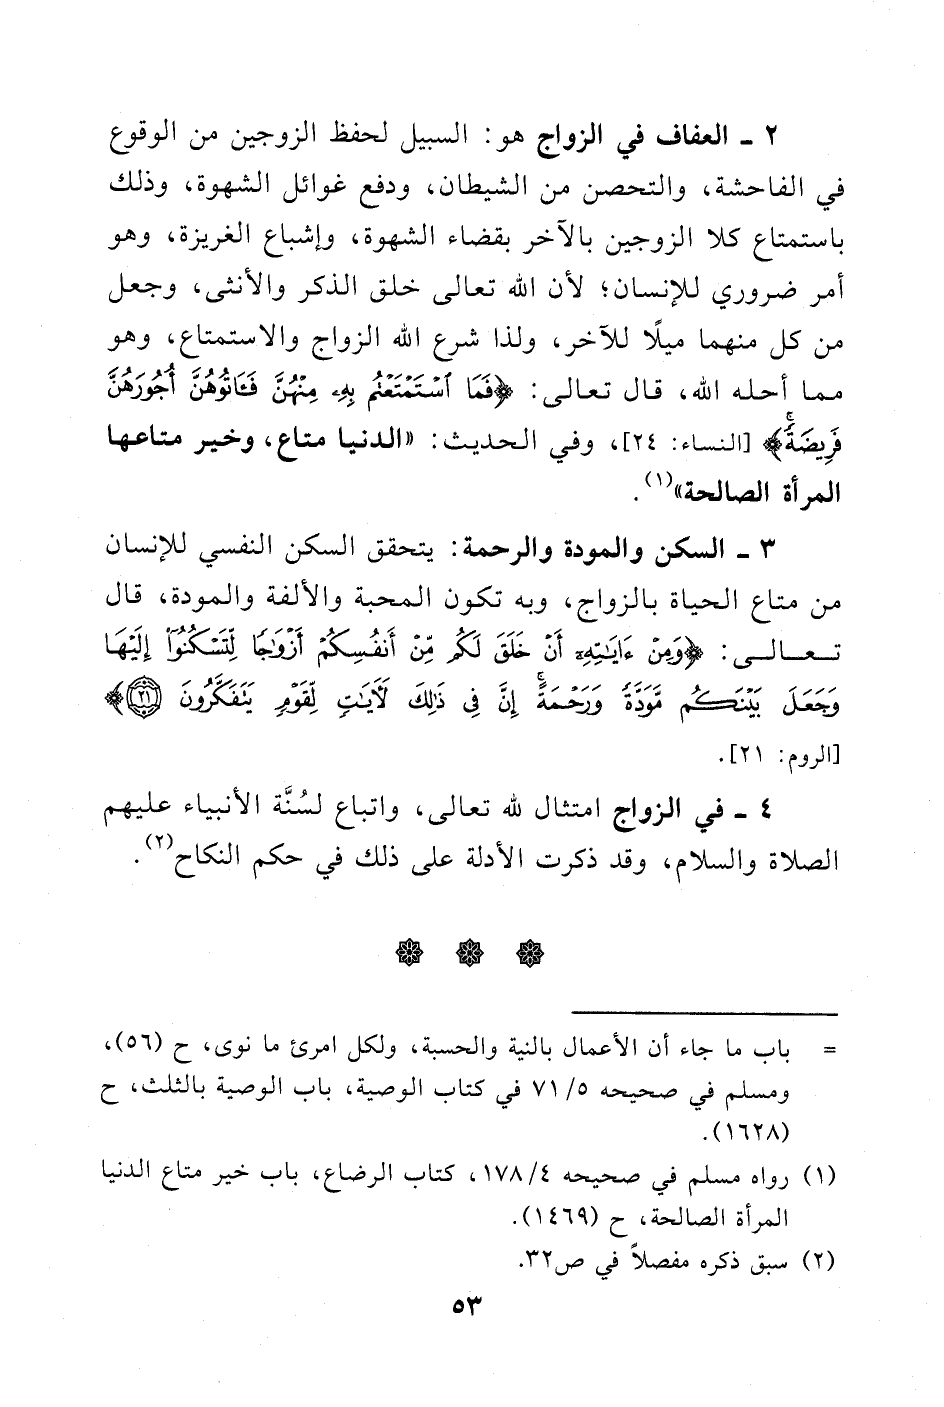 ٢ ـ العفاف في الزواج هو: السبيل لحفظ الزوجين من الوقوع
في الفاحشة، والتحصن من الشيطان، ودفع غوائل الشهوة، وذلك
باستمتاع كلا الزوجين بالآخر بقضاء الشهوة، وإشباع الغريزة، وهو
أمر ضروري للإنسان؛ لأن الله تعالى خلق الذكر والأنثى، وجعل
من كل منهما ميلًا للآخر، ولذا شرع الله الزواج والاستمتاع، وهو
مما أحله الله، قال تعالى: ﴿فَمَا ٱسْتَمْتَعْتُم بِهِۦ مِنْهُنَّ فَـَٔاتُوهُنَّ أُجُورَهُنَّ
فَرِيضَةًۚ﴾ [النساء: ٢٤]، وفي الحديث: «الدنيا متاع، وخير متاعها
المرأة الصالحة»(١).
٣ ـ السكن والمودة والرحمة: يتحقق السكن النفسي للإنسان
من متاع الحياة بالزواج، وبه تكون المحبة والألفة والمودة، قال
تعالى: ﴿وَمِنْ ءَايَٰتِهِۦٓ أَنْ خَلَقَ لَكُم مِّنْ أَنفُسِكُمْ أَزْوَٰجًا لِّتَسْكُنُوٓا۟ إِلَيْهَا
وَجَعَلَ بَيْنَكُم مَّوَدَّةً وَرَحْمَةًۚ إِنَّ فِى ذَٰلِكَ لَـَٔايَٰتٍ لِّقَوْمٍ يَتَفَكَّرُونَ ٢١﴾
[الروم: ٢١].
٤ ـ في الزواج امتثال لله تعالى، واتباع لسُنَّة الأنبياء عليهم
الصلاة والسلام، وقد ذكرت الأدلة على ذلك في حكم النكاح(٢).
= باب ما جاء أن الأعمال بالنية والحسبة، ولكل امرئ ما نوى، ح (٥٦)،
ومسلم في صحيحه ٧١/٥ في كتاب الوصية، باب الوصية بالثلث، ح
(١٦٢٨).
(١) رواه مسلم في صحيحه ١٧٨/٤، كتاب الرضاع، باب خير متاع الدنيا
المرأة الصالحة، ح (١٤٦٩).
(٢) سبق ذكره مفصلاً في ص٣٢.
٥٣